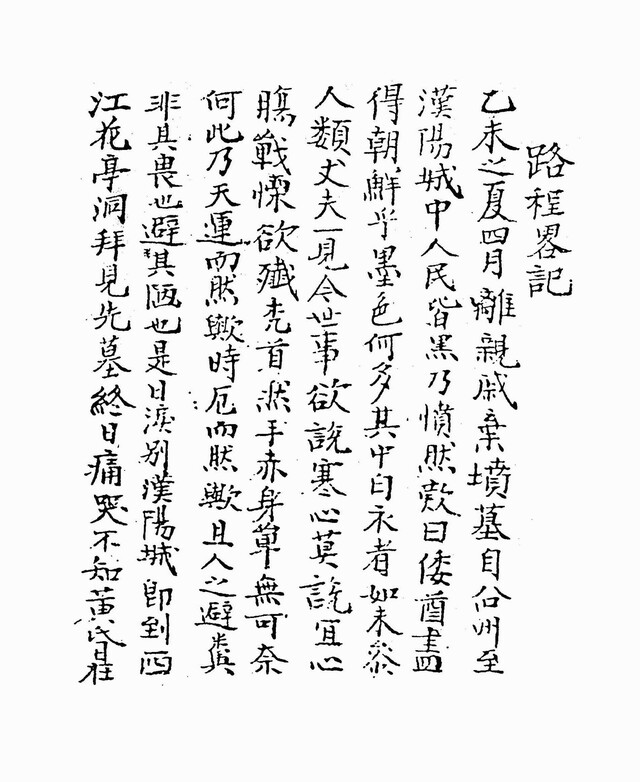 路程畧記
乙未之夏四月離親戚棄墳墓自公州至
漢陽城中人民皆黑乃憤然歎曰倭酋盡
得朝鮮乎墨色何多其中白衣者如未參
人類丈夫一見今世事欲說寒心莫說冝心
腸戰慄欲殱禿首然手赤身單無可奈
何此乃天運而然歟時厄而然歟且人之避糞
非其畏也避其陋也是日淚別漢陽城即到西
江花亭洞拜見先墓終日痛哭不知黃氏